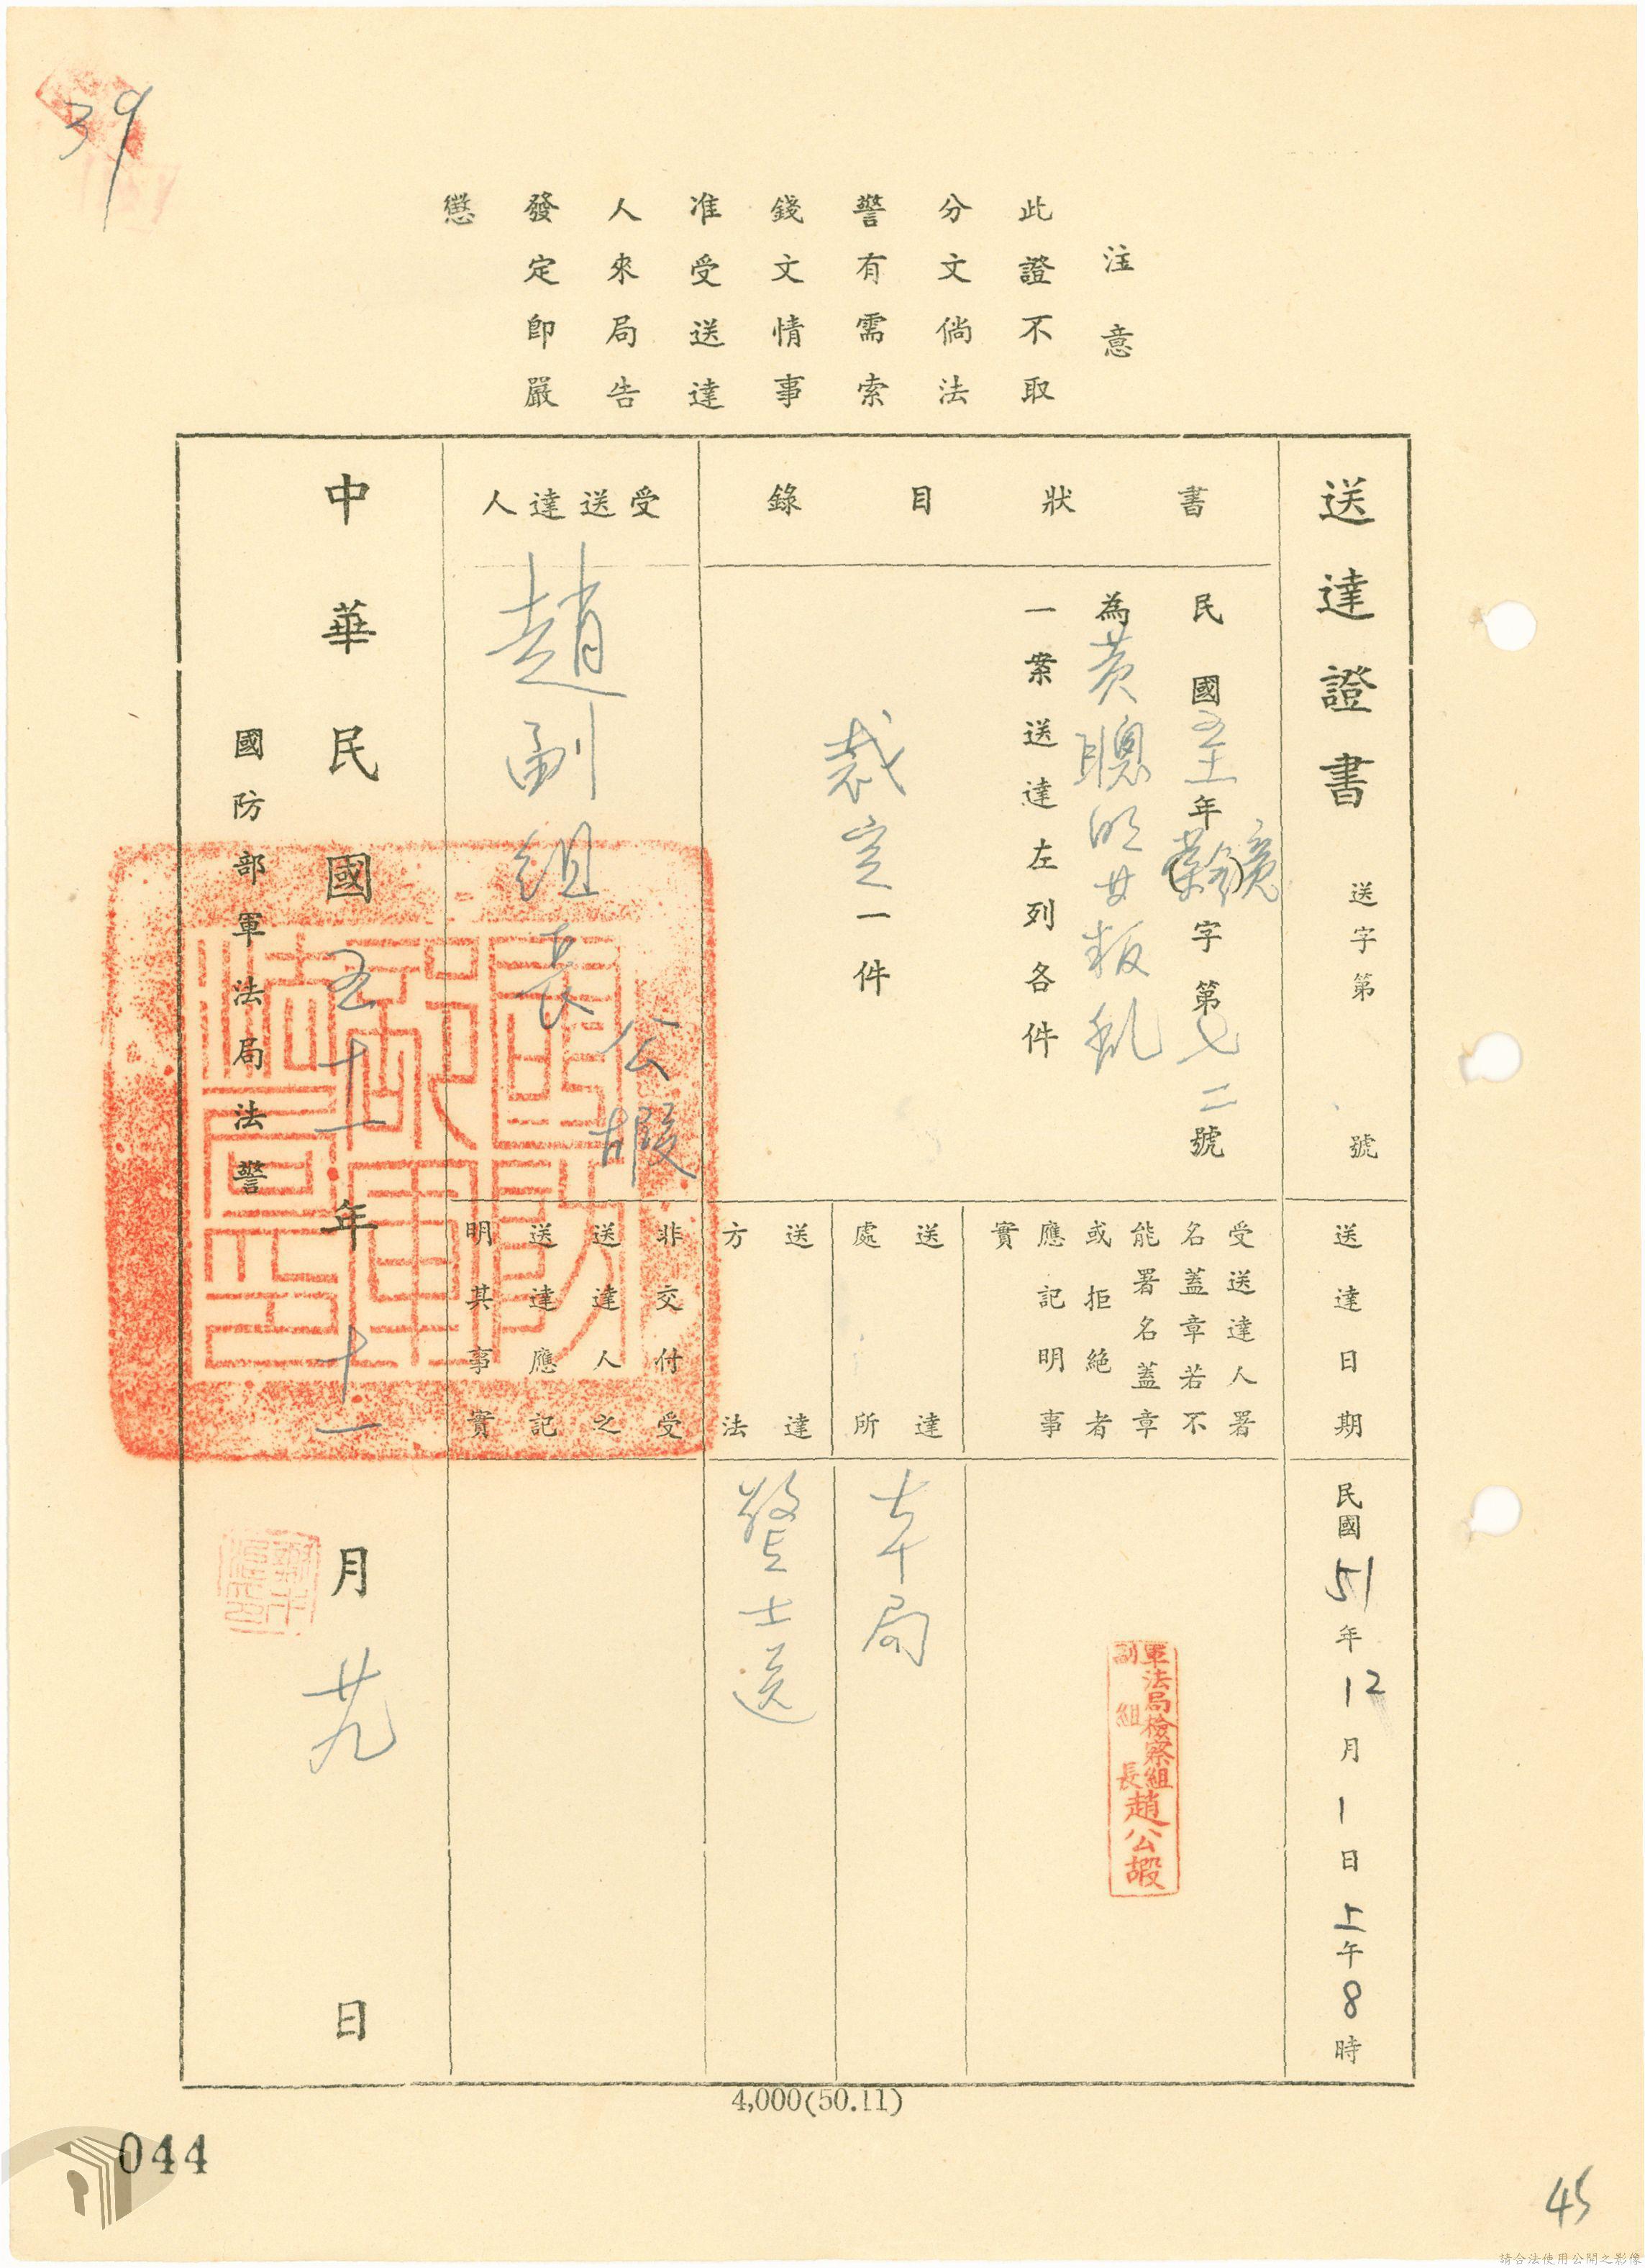 39
注意
此證不取
分文倘法
警有需索
錢文情事
准受送達
人來局告
發定即嚴
懲
送達證書 送字第 號
書狀目錄
民國五十年字第七二號
為黃聰明等叛亂
一案送達左列各件
裁定一件
受送達人
趙副組長
公嘏
中華民國五十一年十一月廿九日
國防部軍法局法警
送達日期
民國51年12月1日上午8時
受送達人署
名蓋章若不
能署名蓋章
或拒絕者
應記明事
實
軍法局檢察組
副組長
趙公嘏
送達
處所
本局
送達
方法
警士送
非交付受
送達人之
送達應記
明其事實
4,000(50.11)
044
45
請合法使用公開之影像